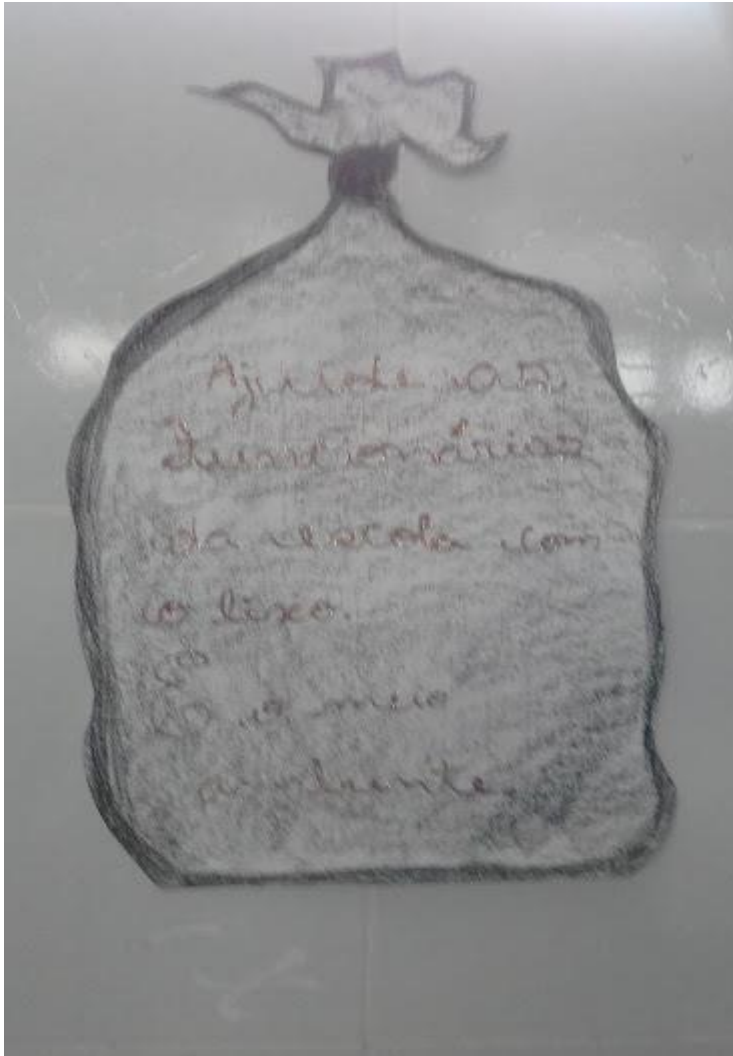 Ajude os
funcionários
da escola com
o lixo.
e o meio
ambiente.